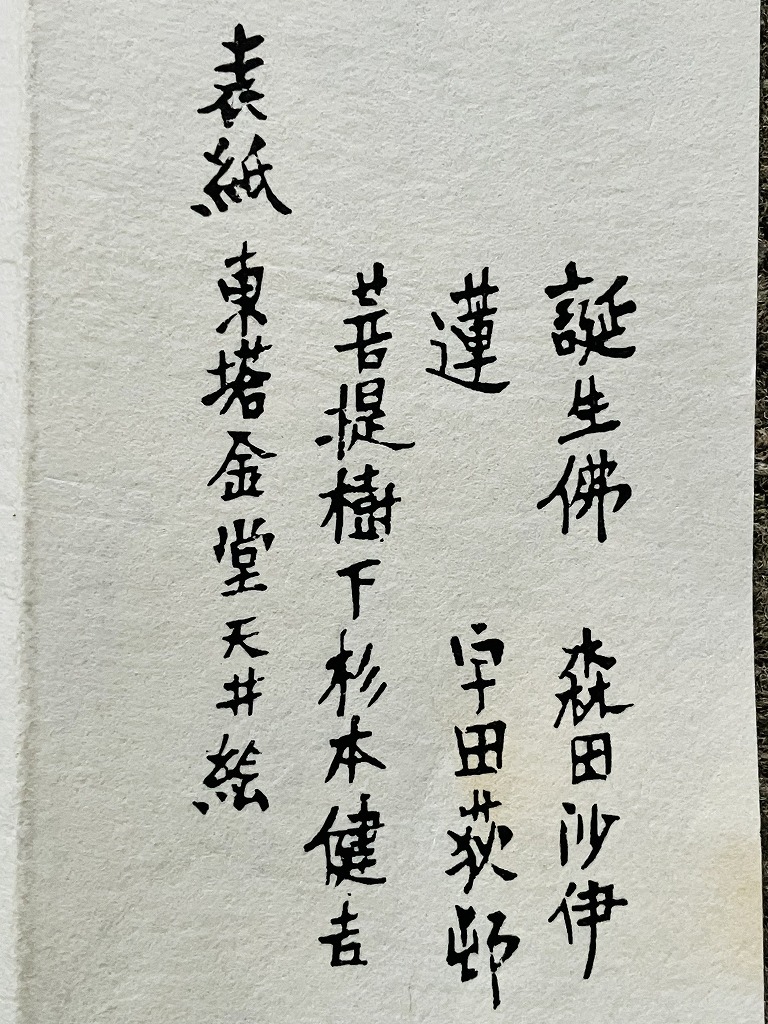 誕生佛　森田沙伊
蓮　宇田荻邨
菩提樹下杉本健吉
表紙　東塔金堂天井絵